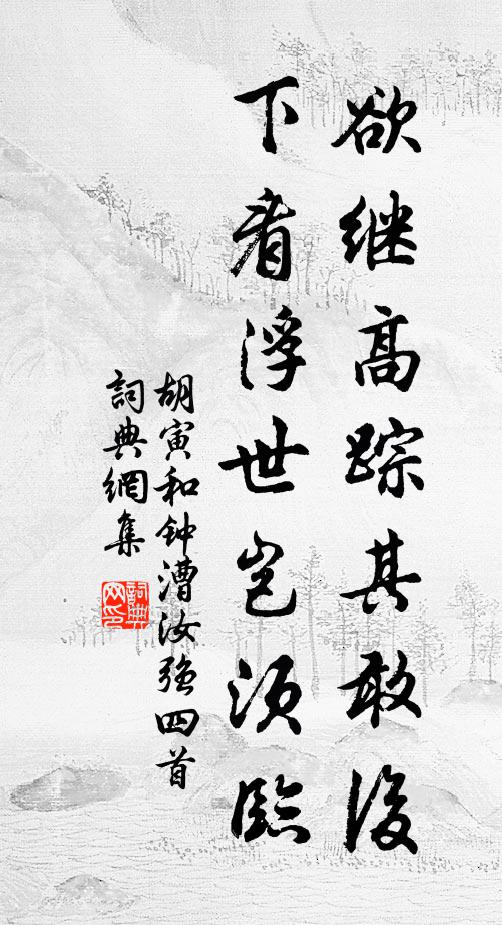 欲继高踪其敢後
下看浮世岂须臨
胡寅和钟漕汝强四首
詞典網集
詞典
网印